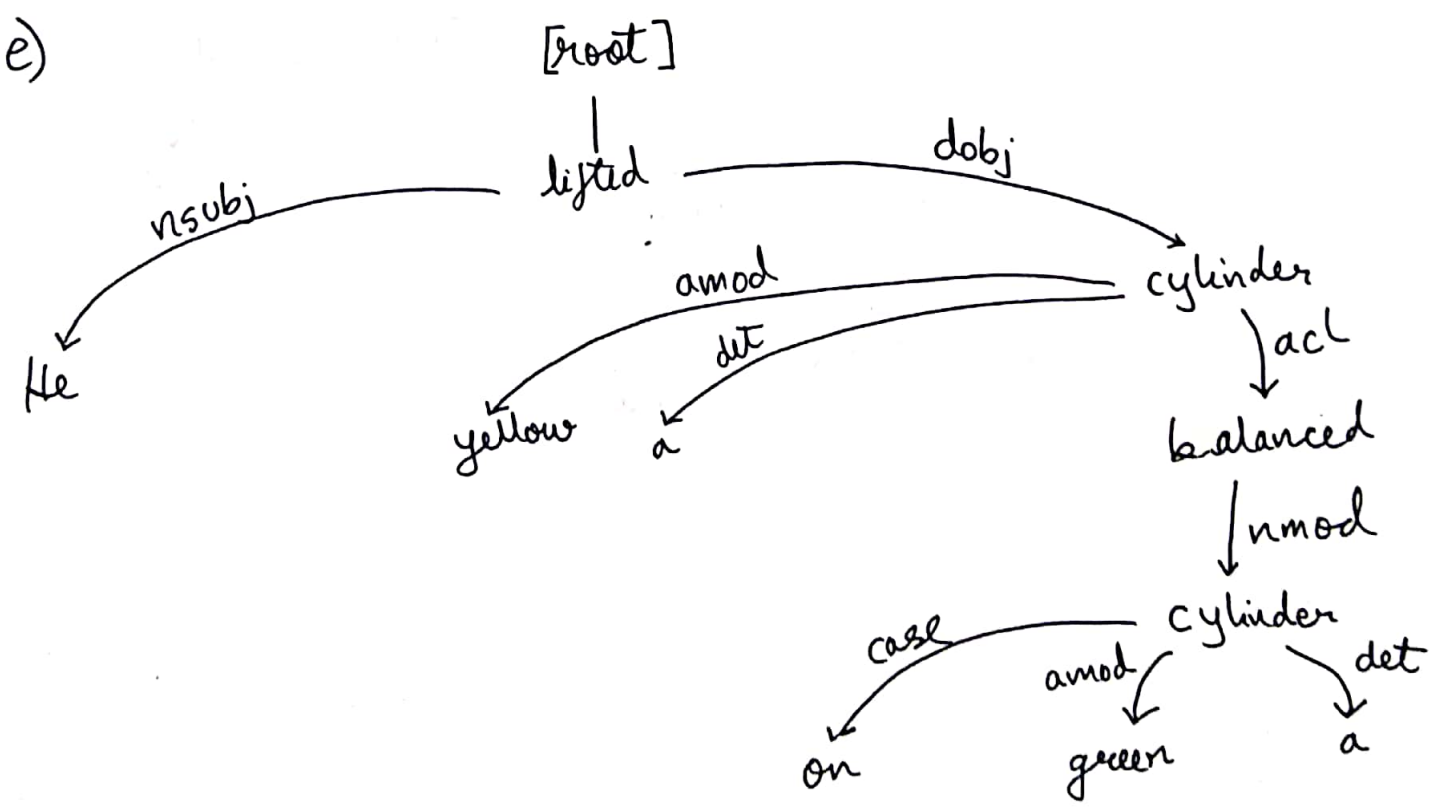 e)
[root]
lifted
dobj
nsubj
amod
cylinder
det
acl
He
yellow
a
balanced
nmod
cylinder
case
amod
det
on
green
a